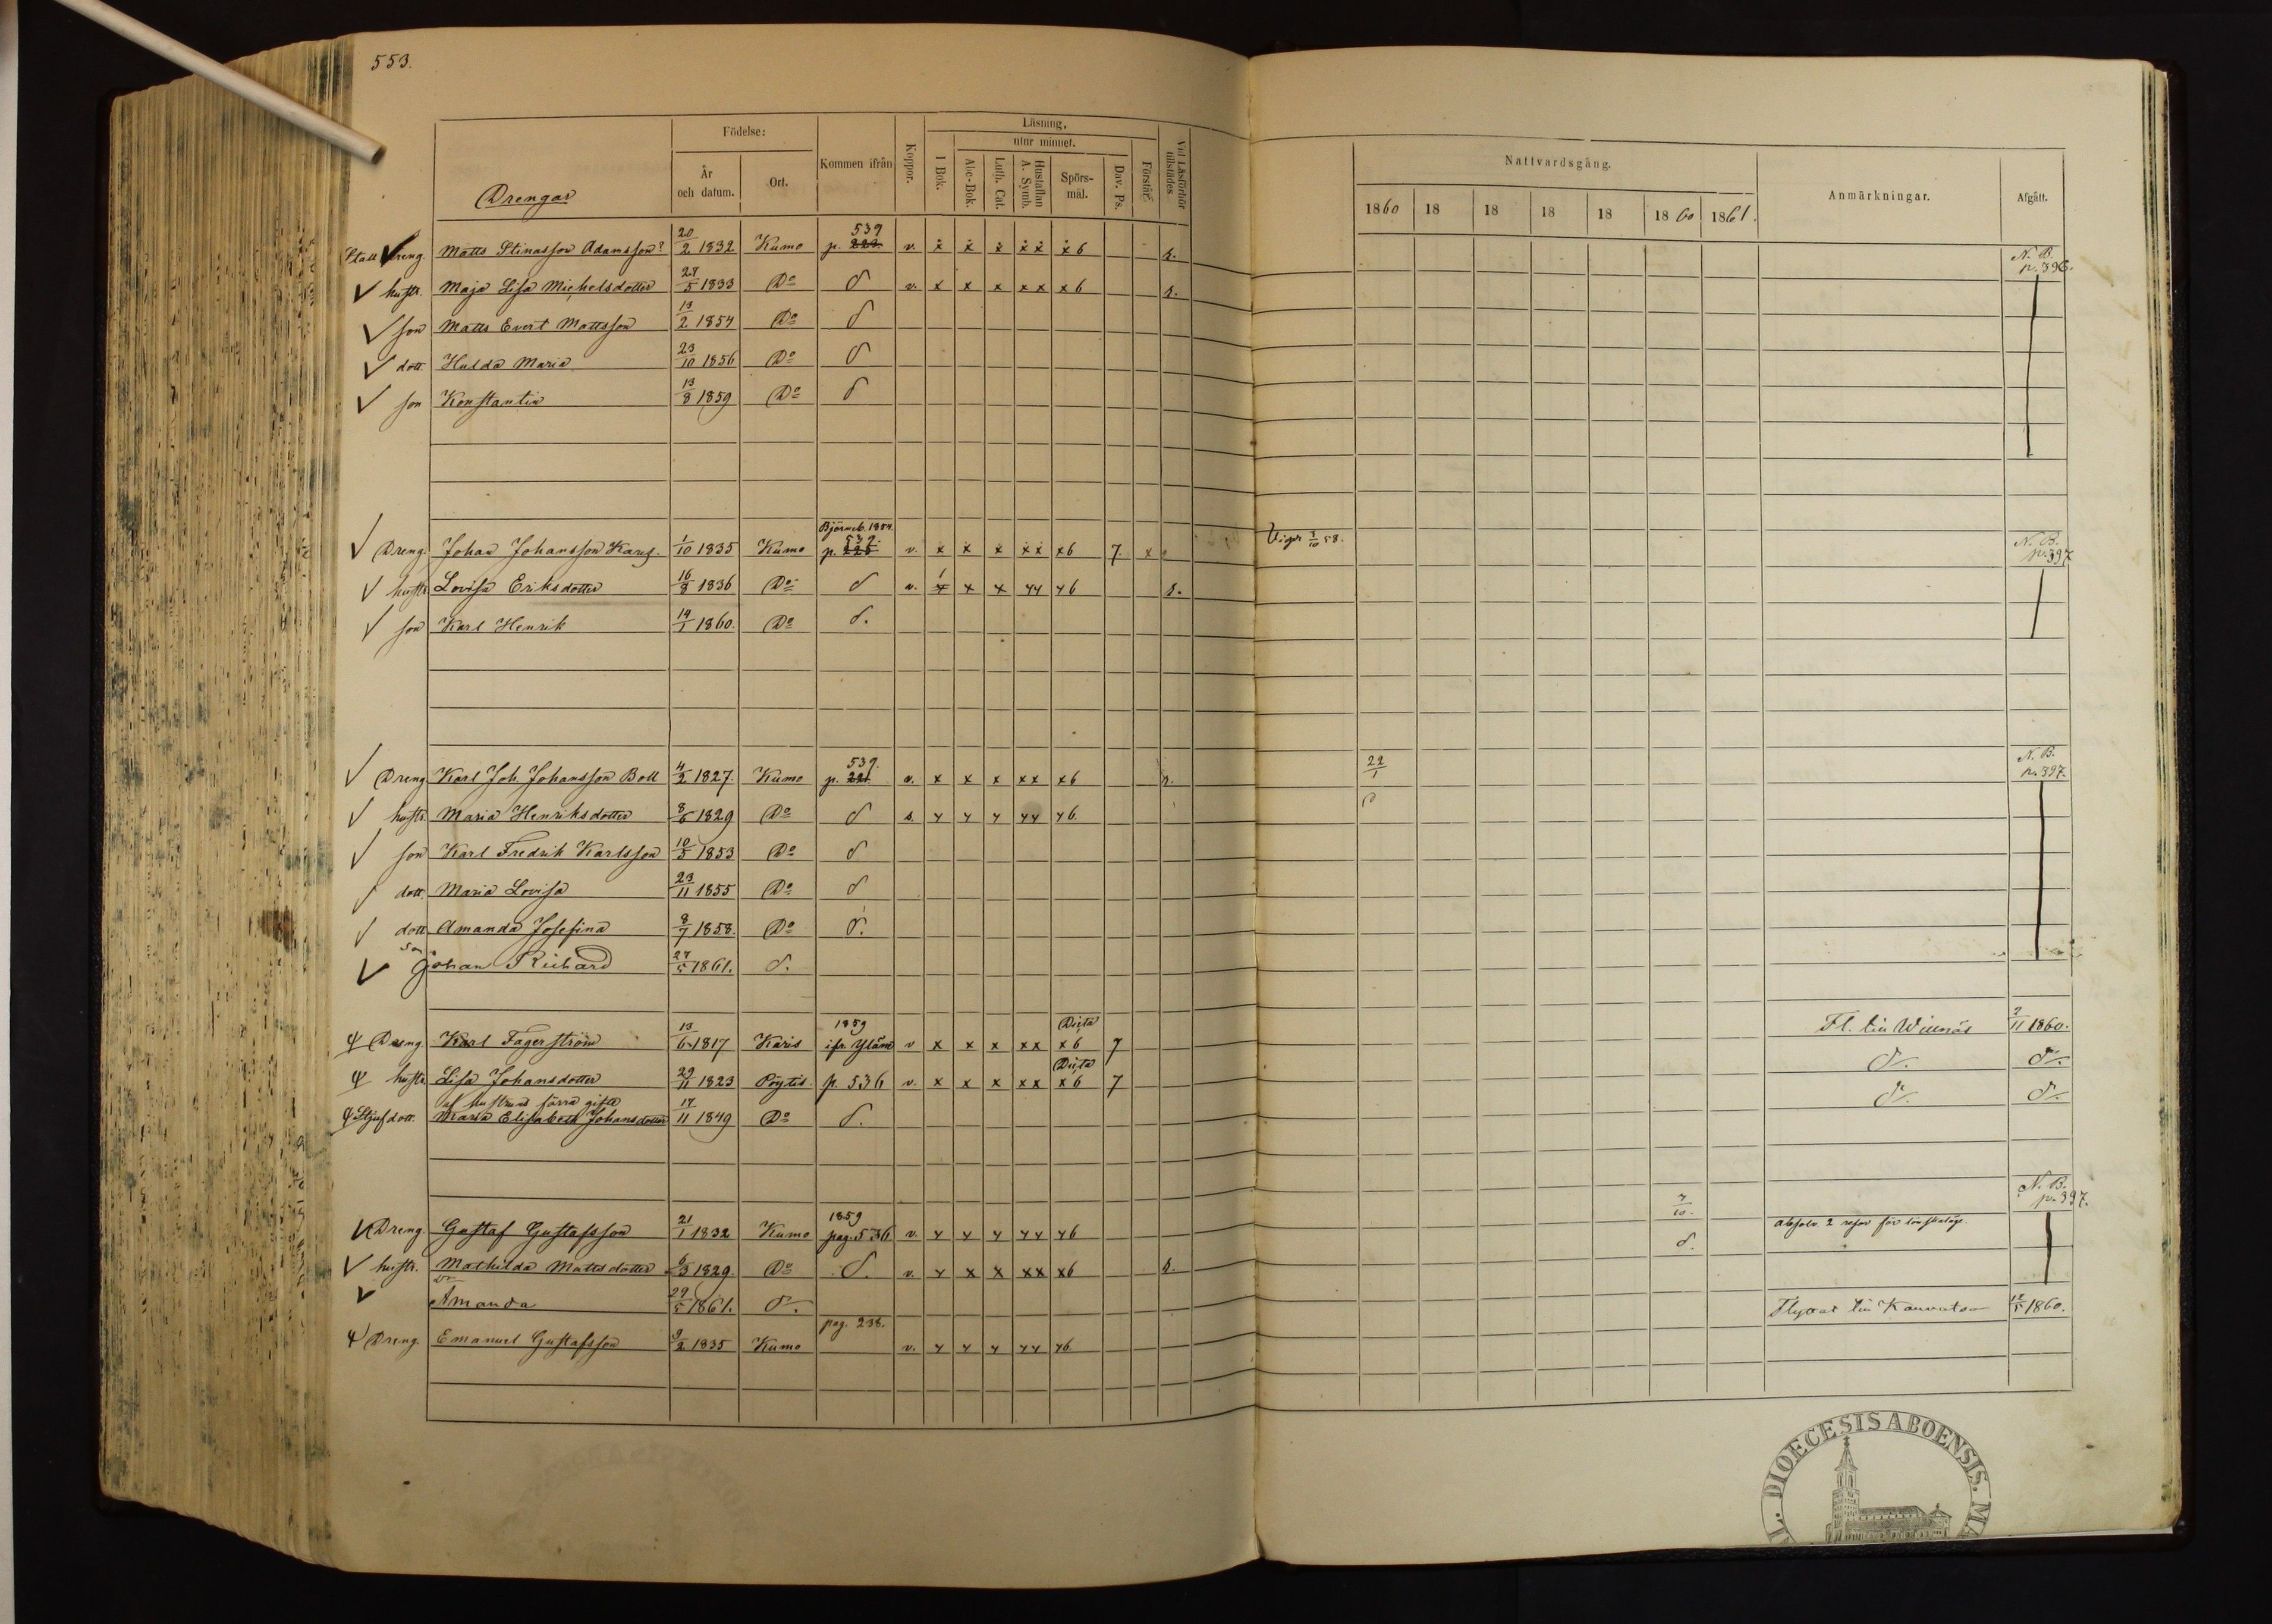 553.
Drengar
Födelse:
År och datum.
Ort.
Kommen ifrån
Koppor.
Läsning,
I Bok.
utur minnet.
Abc-Bok.
Luth. Cat.
Hustaflan A. Symb.
Spörs-mål.
Dav. Ps.
Förstår.
Vid Läsförhör tillstädes
Nattvardsgång.
1860 18 18 18 18 1860 1861.
Anmärkningar.
Afgått.
Dreng. Matts Stinasson Adamsson? 20/2 1832 Kumo p. 539 v. x x x x x x 6 N. B. p. 396.
hustr. Maja Lisa Michelsdotter 1833 Do d v. x x x x x x 6
son Matts Evert Mattsson 13/2 1854 Do d
dott. Hulda Maria 23/10 1856 Do d
son Konstantin 13/8 1859 Do d
Björneb. 1854.
Dreng. Johan Johansson 1/10 1835 Kumo p. 539. v. x x x x x x 6 7. 58. N. B. p. 397
hustr. Lovisa Eriksdotter 16/8 1836 Do d v.
son Karl Henrik 14/1 1860. Do d.
Dreng Karl Joh. Johansson Boll 4/2 1827. Kumo p. 539. v. x x x x x x 6 22/1 N. B. p. 397.
hustr. Maria Henriksdotter 1829 Do d s.
son Karl Fredrik Karlsson 10/5 1853 Do d
dott. Maria Lovisa 23/11 1855 Do d
dott Amanda Josefina 8/7 1858. Do d.
son Johan Richard 27/5 1861. d.
Dreng. Karl Fagerström 13/6 1817 Karis 1859 ifr. Yläne v x x x x x x 6 7 Fl. till 1860.
hustr. Lisa Johansdotter 29/11 1823 Pöytis. p. 536 v. x x x x x x 6 7 d. d.
af hustruns förra gifte
Stjufdott. Maria Elisabeth Johansdotter 17/11 1849 Do d. d. d.
Dreng. Gustaf Gustafsson 21/1 1832 Kumo 1859 pag. 536 v. N. B. p. 397.
hustr. Mathilda Mattsdotter 1829. Do d. v.
Amanda 29/5 1861. d.
Dreng. Emanuel Gustafsson 9/2 1835 Kumo pag. 238. v. 1860.
DIOECESIS ABOENSIS.